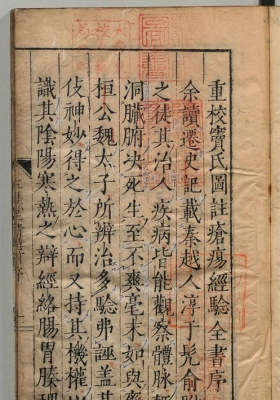 重校竇氏圖註瘡瘍經驗全書序
余讀遷史記載秦越人淳于髡俞跗
之徒其治人疾病皆能觀察體脉
洞臟腑决死生至不爽毫末如與齊
桓公魏太子所辨治多驗弗誣蓋其
伎神妙得之於心而又持其機權以
識其陰陽寒熱之辯經絡腸胃腠理